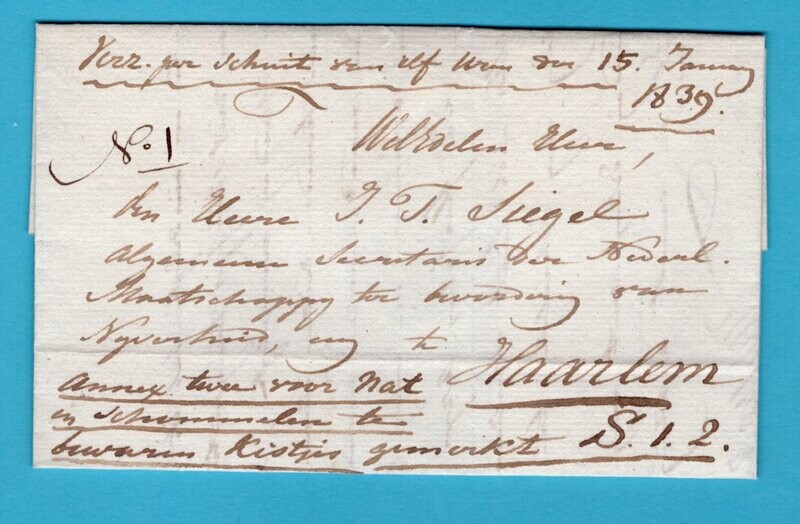 Verz. per schuit van elf uren den 15. January
1839.
No. 1
WelEdelen Heer,
den Heere J. T. Siegel
Algemeen Secretaris der Nederl.
Maatschappy ter bevordering van
Nyverheid, enz te
Haarlem
Annex twee voor Nat
en schommelen te
bewaren Kistjes gemerkt S. 1. 2.